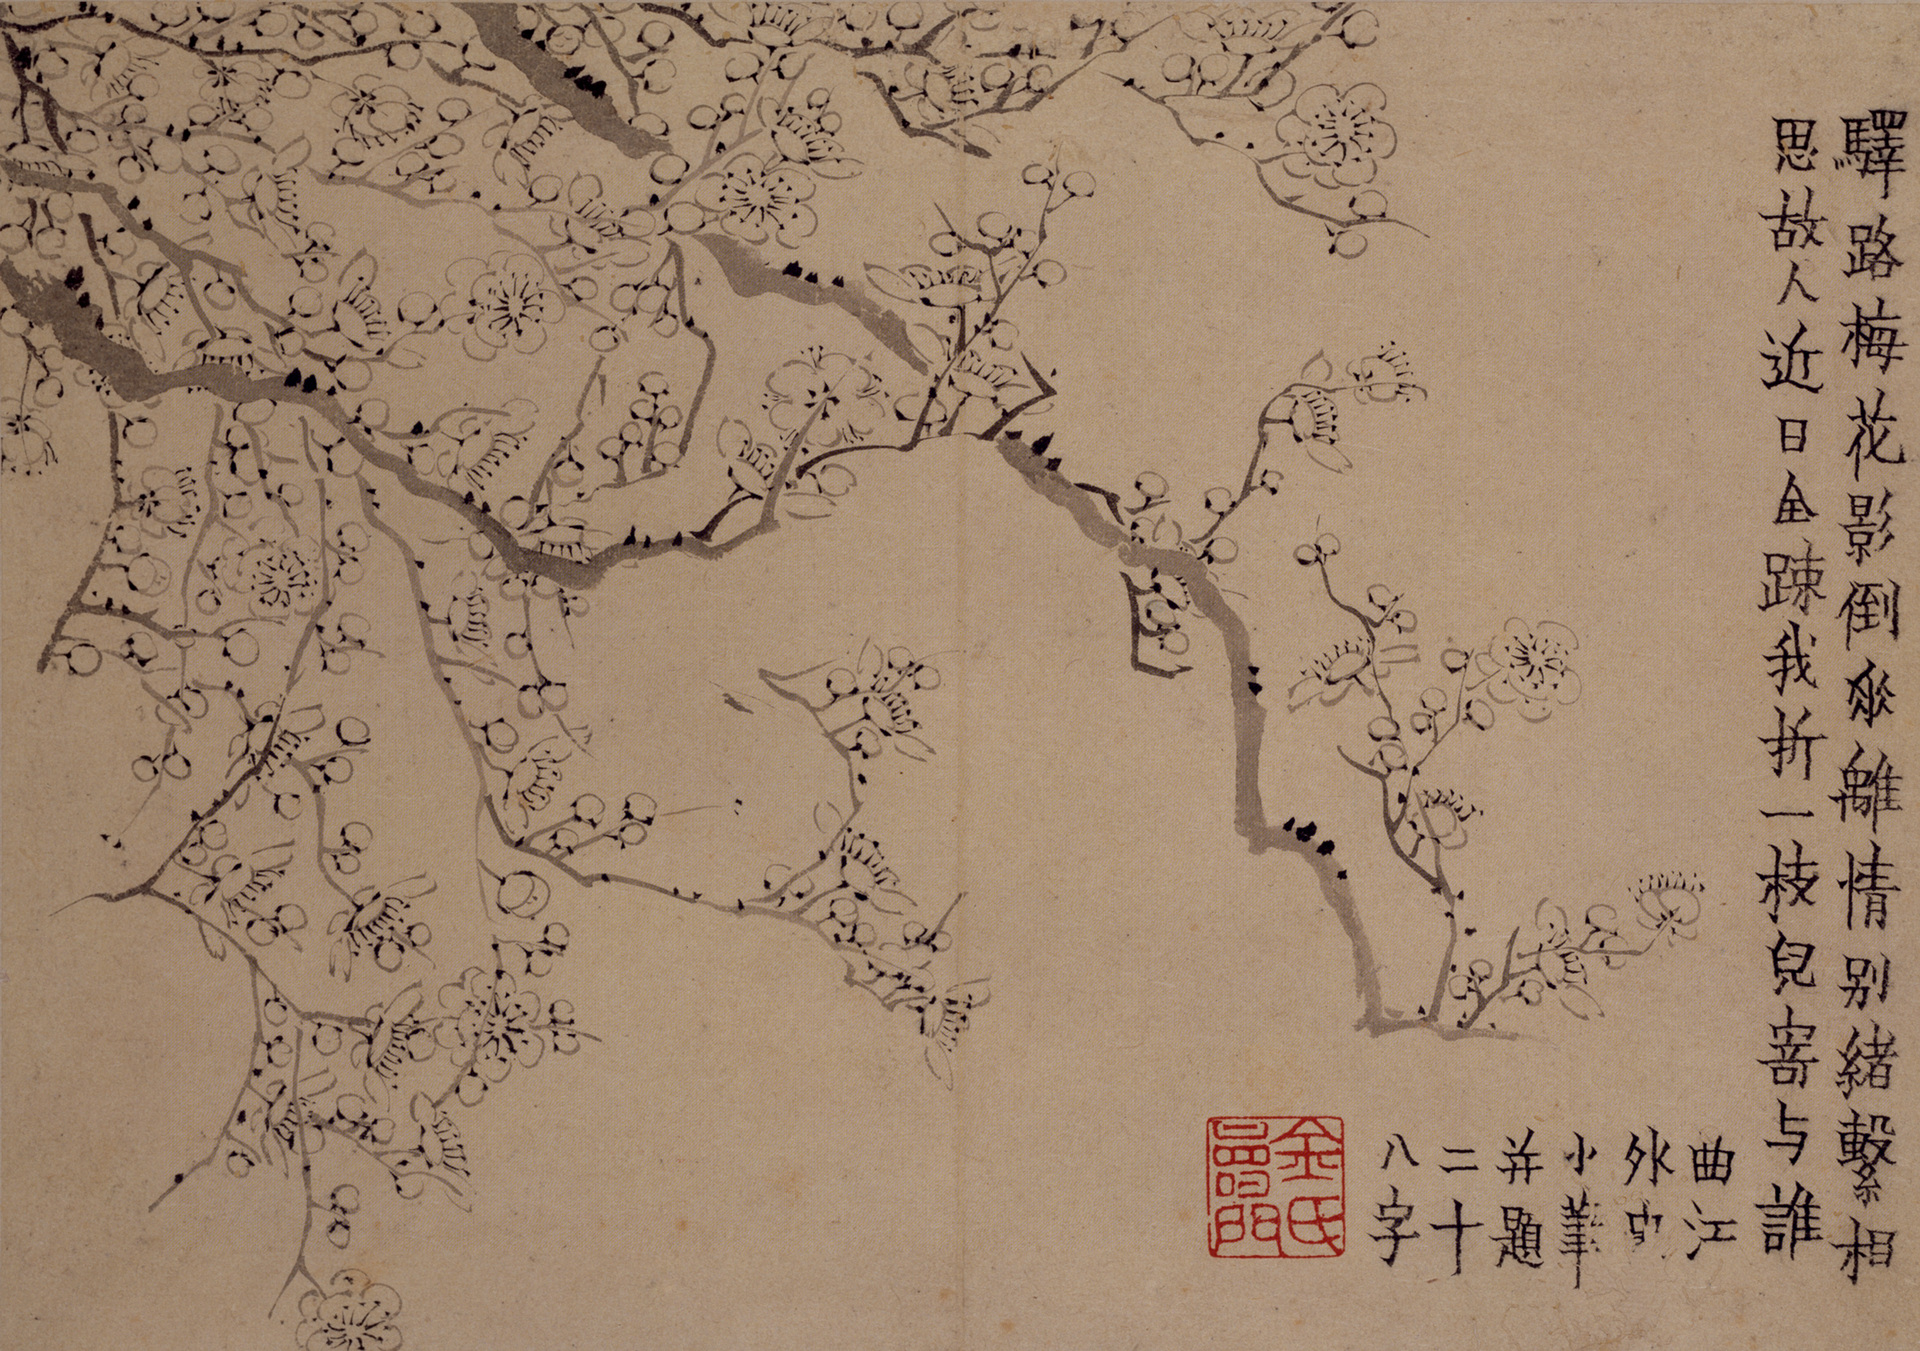 驛路梅花影倒垂離情别緒繫相
思故人近日全踈我折一枝兒寄与誰
曲江
外史
小筆
并題
二十
八字
金氏
壽門